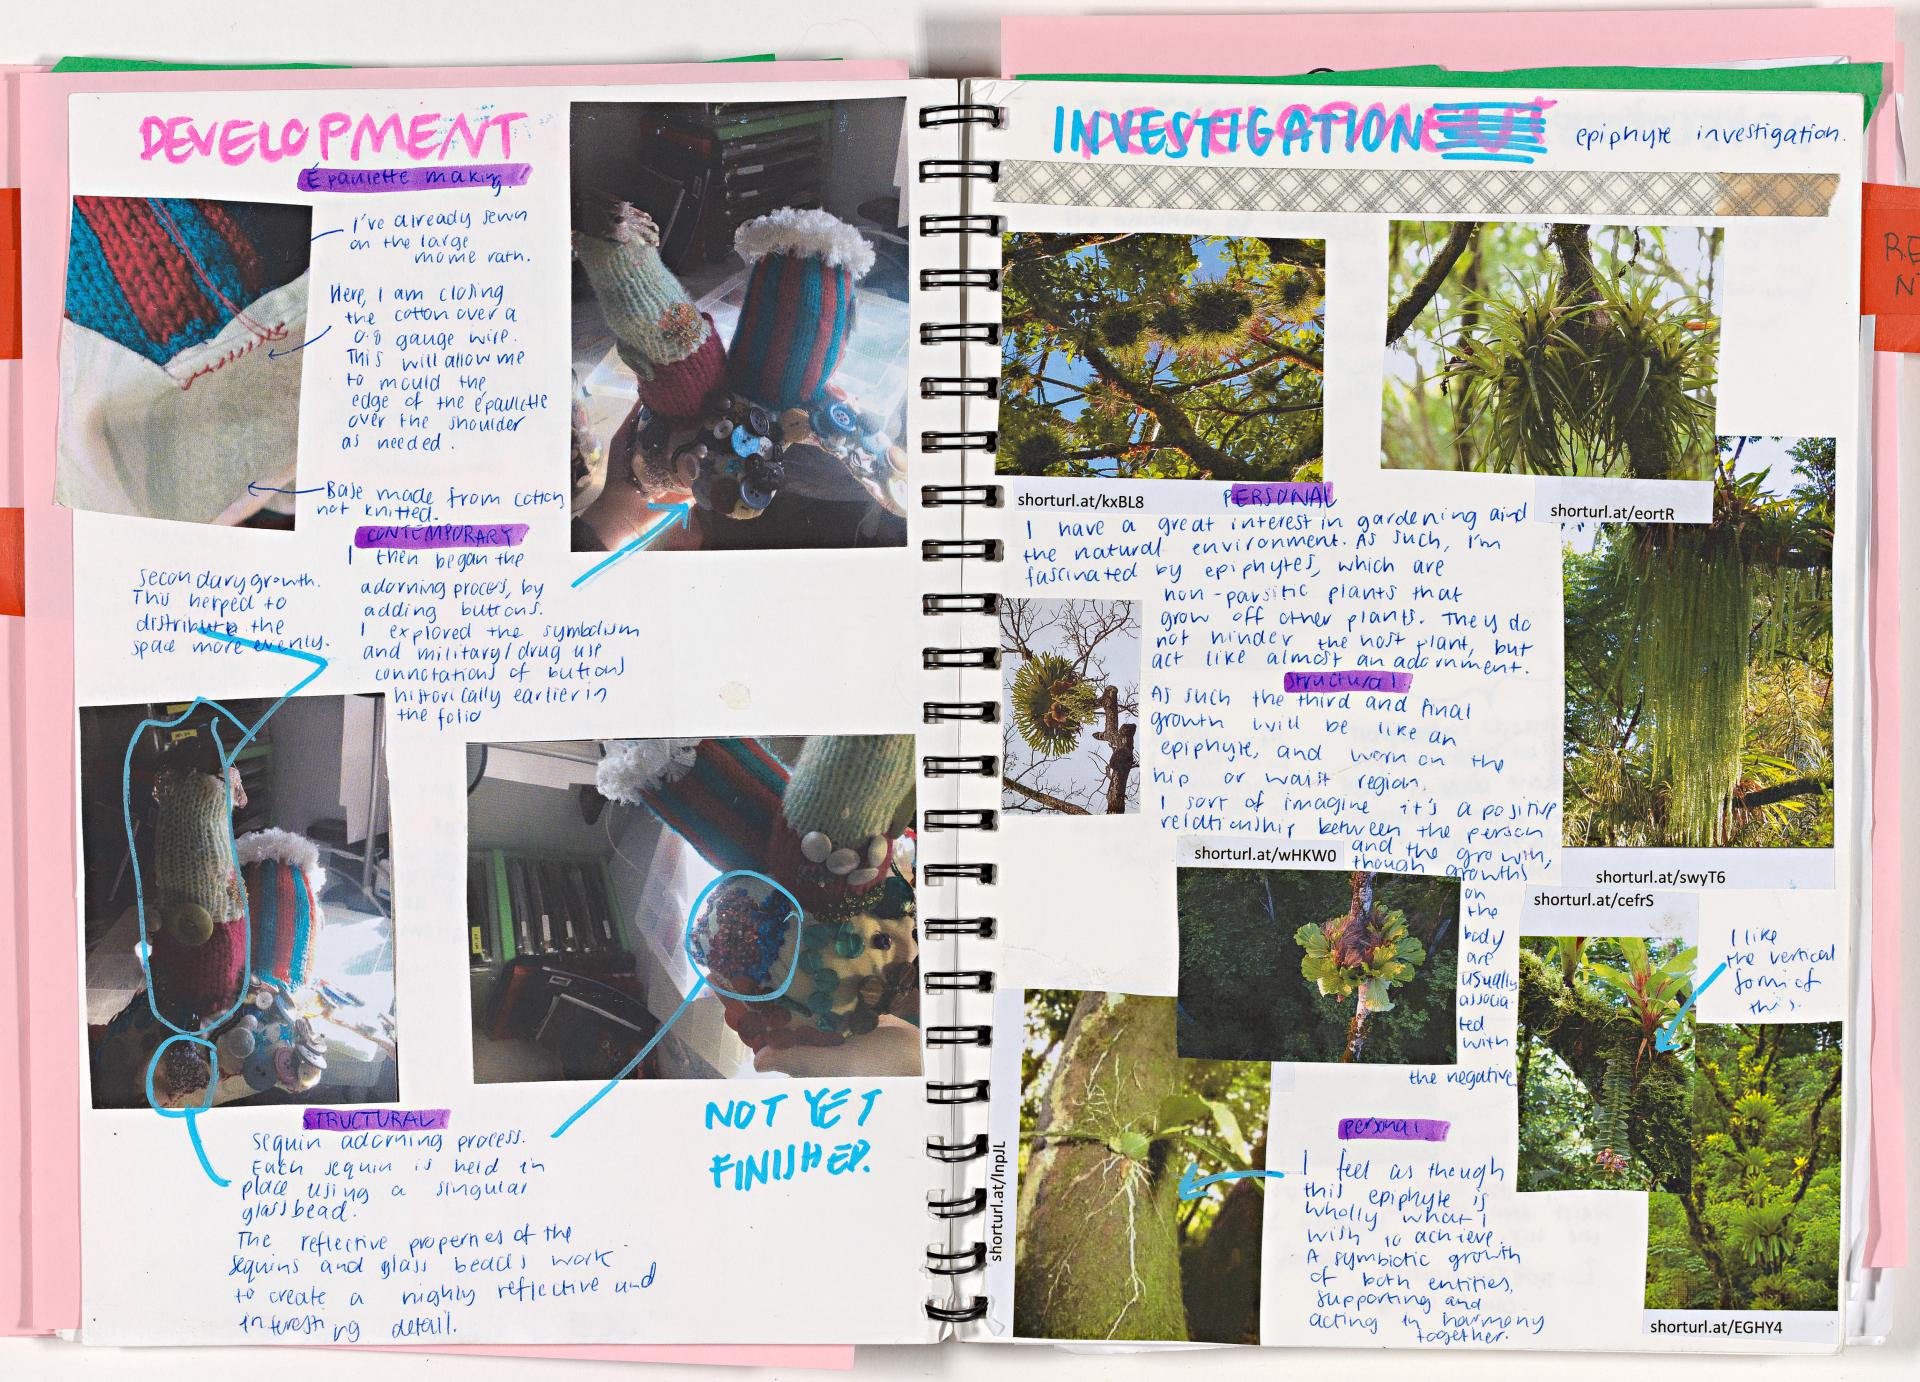 DEVELOPMENT
Épaulette making.
I've already sewn
on the large
mome rath.
Here, I am closing
the cotton over a
0.8 gauge wire.
This will allow me
to mould the
edge of the épaulette
over the shoulder
as needed.
Base made from cotton,
not knitted.
CONTEMPORARY.
I then began the
adorning process, by
adding buttons.
I explored the symbolism
and military/drug use
connotations of buttons
historically earlier in
the folio
secondary growth.
This helped to
distribute the
space more evenly.
STRUCTURAL
sequin adorning process.
Each sequin is held in
place using a singular
glass bead.
The reflective properties of the
sequins and glass beads work
to create a highly reflective and
interesting detail.
NOT YET
FINISHED.
INVESTIGATION
epiphyte investigation.
RE
N
shorturl.at/kxBL8
shorturl.at/eortR
PERSONAL
I have a great interest in gardening and
the natural environment. As such, I'm
fascinated by epiphytes, which are
non-parsitic plants that
grow off other plants. They do
not hinder the host plant, but
act like almost an adornment.
Structural.
As such the third and final
growth will be like an
epiphyte, and worn on the
hip or waist region.
I sort of imagine it's a positive
relationship between the person
and the growth,
though growths
on
the
body
are
usually
associa-
ted
with
the negative
shorturl.at/wHKW0
shorturl.at/swyT6
shorturl.at/cefrS
I like
the vertical
form of
this.
shorturl.at/lnpJL
personal.
I feel as though
this epiphyte is
wholly what I
wish to achieve.
A symbiotic growth
of both entities,
supporting and
acting in harmony
together.
shorturl.at/EGHY4